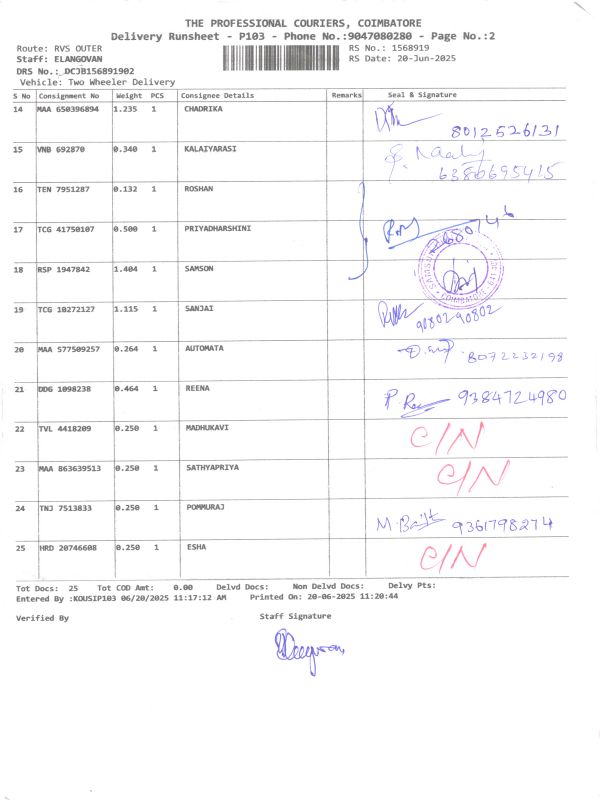 THE PROFESSIONAL COURIERS, COIMBATORE
Delivery Runsheet - P103 - Phone No.:9047080280 - Page No.:2
Route: RVS OUTER RS No.: 1568919
Staff: ELANGOVAN RS Date: 20-Jun-2025
DRS No.: DCJB156891902
Vehicle: Two Wheeler Delivery
S No Consignment No Weight PCS Consignee Details Remarks Seal & Signature
14 MAA 650396894 1.235 1 CHADRIKA
8012526131
15 VNB 692870 0.340 1 KALAIYARASI
6380695415
16 TEN 7951287 0.132 1 ROSHAN
17 TCG 41750107 0.500 1 PRIYADHARSHINI
18 RSP 1947842 1.404 1 SAMSON
COIMBATORE
19 TCG 10272127 1.115 1 SANJAI
9080290802
20 MAA 577509257 0.264 1 AUTOMATA 8072232198
21 DDG 1098238 0.464 1 REENA 9384724980
22 TVL 4418209 0.250 1 MADHUKAVI C/N
23 MAA 863639513 0.250 1 SATHYAPRIYA C/N
24 TNJ 7513833 0.250 1 POMMURAJ
9361798274
25 HRD 20746608 0.250 1 ESHA C/N
Tot Docs: 25 Tot COD Amt: 0.00 Delvd Docs: Non Delvd Docs: Delvy Pts:
Entered By :KOUSIP103 06/20/2025 11:17:12 AM Printed On: 20-06-2025 11:20:44
Verified By Staff Signature